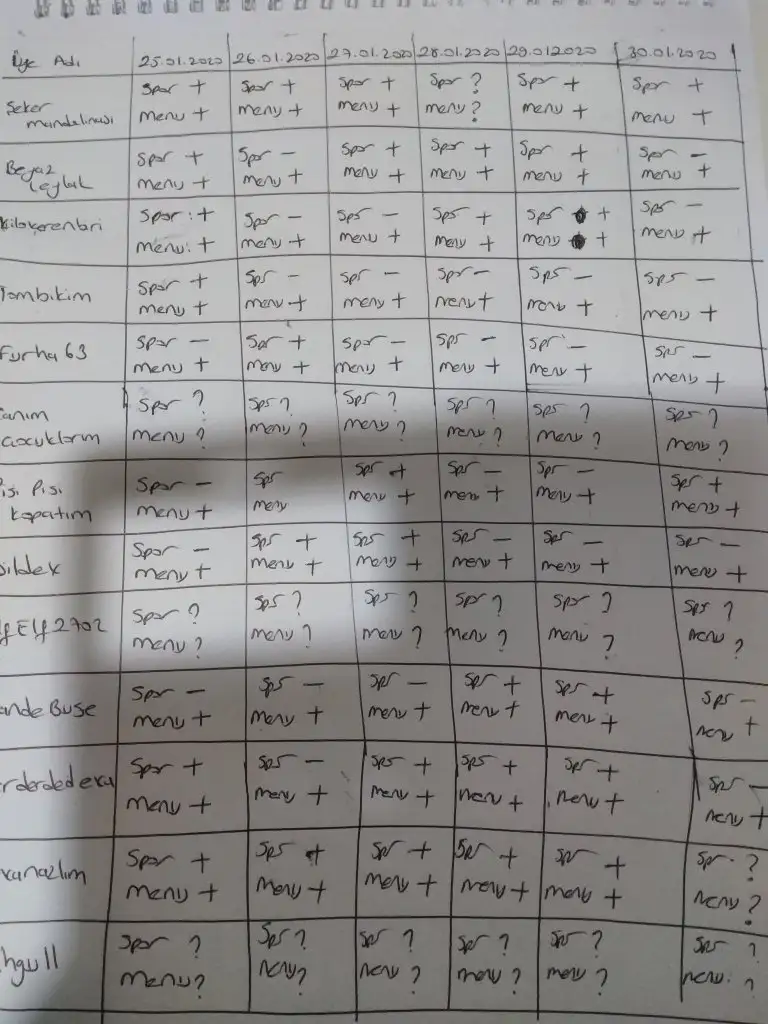 Üye Adı 25.01.2020 26.01.2020 27.01.2020 28.01.2020 29.01.2020 30.01.2020
Şeker Spor + Spor + Spor + Spor ? Spor + Spor +
mandalinası menu + menu + menu + menu ? menu + menu +
Beyaz Spor + Spor - Spor + Spor + Spor + Spor -
Leylak menu + menu + menu + menu + menu + menu +
kiloverenbri Spor : + Spor - Spor - Spor + Spor + Spor -
menu : + menu + menu + menu + menu + menu +
Tombikim Spor + Spor - Spor - Spor - Spor - Spor -
menu + menu + menu + menu + menu + menu +
Furha 63 Spor - Spor + Spor - Spor - Spor - Spor -
menu + menu + menu + menu + menu + menu +
anım Spor ? Spor ? Spor ? Spor ? Spor ? Spor ?
çocuklarım menu ? menu ? menu ? menu ? menu ? menu ?
isi Pisi Spor - Spor Spor + Spor - Spor - Spor +
kopatım menu + menu menu + menu + menu + menu +
Spor - Spor + Spor + Spor - Spor - Spor -
dildek menu + menu + menu + menu + menu + menu +
fElf2702 Spor ? Spor ? Spor ? Spor ? Spor ? Spor ?
menu ? menu ? menu ? menu ? menu ? menu ?
ande Buse Spor - Spor - Spor - Spor + Spor + Spor -
menu + menu + menu + menu + menu + menu +
rderdedexa Spor + Spor - Spor + Spor + Spor + Spor -
menu + menu + menu + menu + menu + menu +
xanazlım Spor + Spor + Spor + Spor + Spor + Spor ?
menu + menu + menu + menu + menu + menu ?
hgull Spor ? Spor ? Spor ? Spor ? Spor ? Spor ?
menu ? menu ? menu ? menu ? menu ? menu : ?